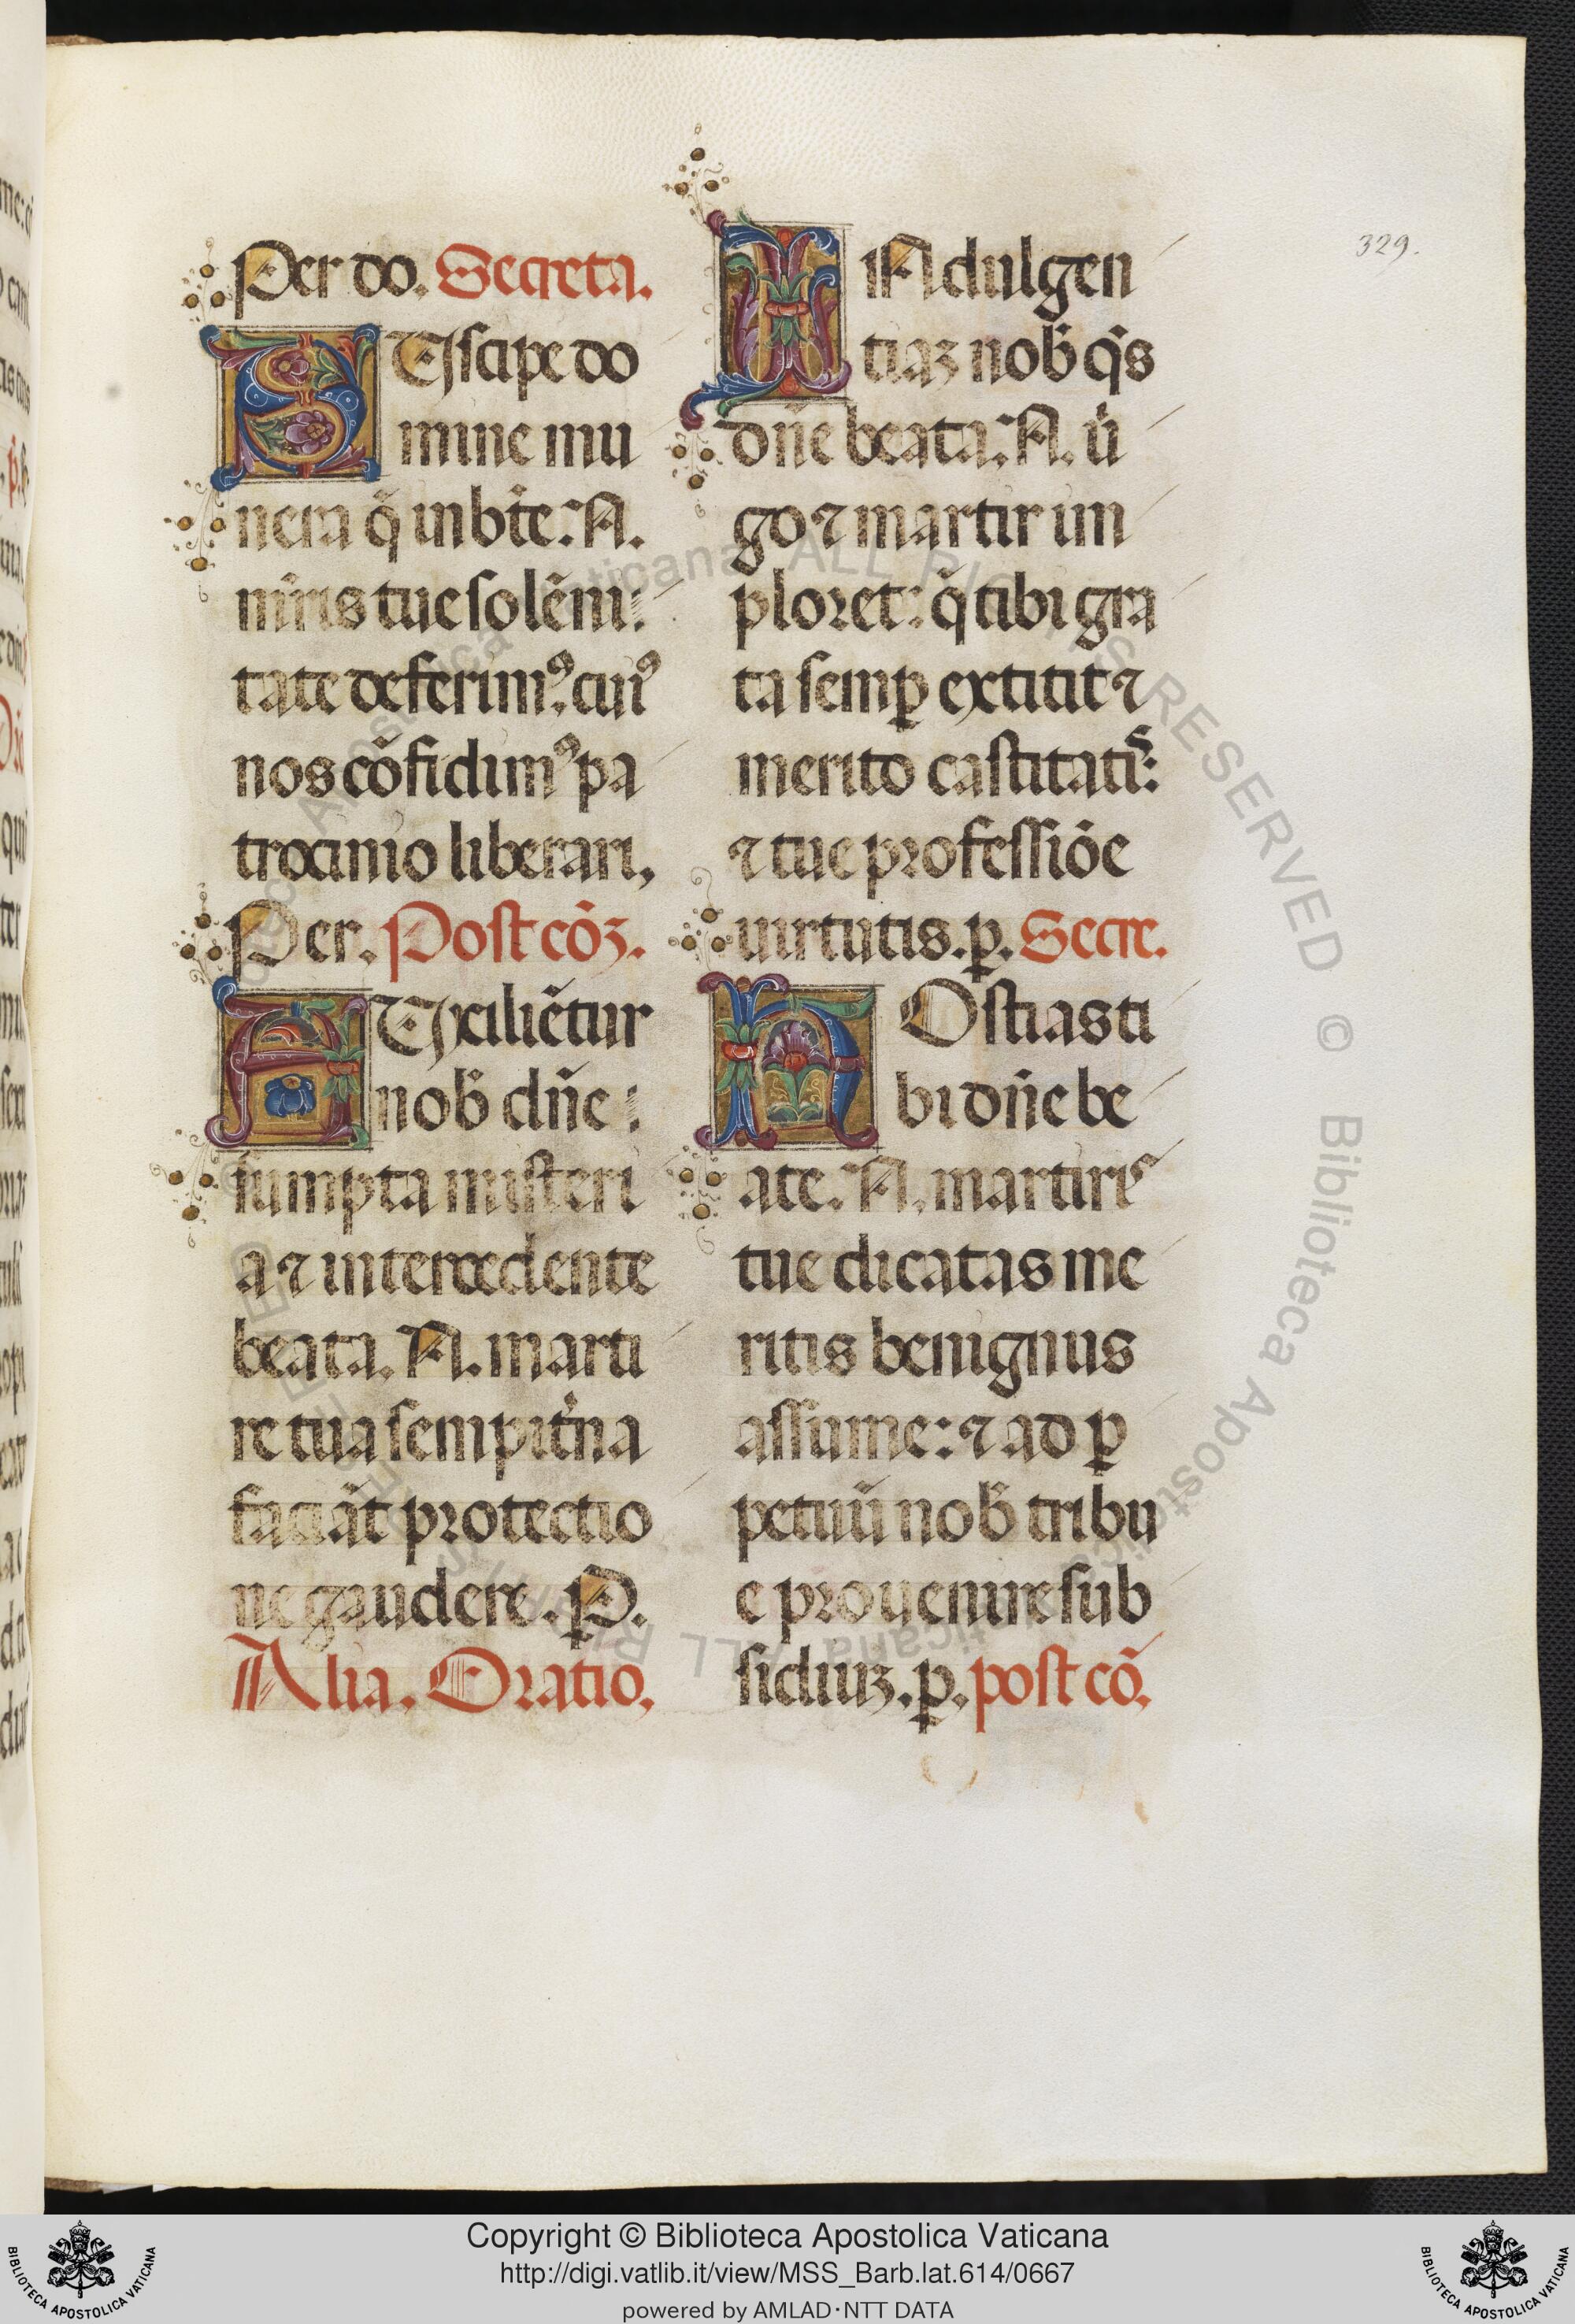 329.
Per do. Secreta.
SUscipe do
mine mu
nera q̃ in bt̃e. N.
mr̃is tue solẽni:
tate deferimꝰ. cuiꝰ
nos cõfidimꝰ pa
trocinio liberari,
Per. Post cõꝫ.
AUxiliẽtur
nob̃ dñe:
sumpta misteri
a ⁊ intercedente
beata. N. marti
re tua sempit̾na
faciãt protectio
ne gaudere. P.
Alia. Oratio,
INdulgen
tiaꝫ nob̃ q̃s
dñe beata. N. ũ
go ⁊ martir im
ploret: q̃ tibi gra
ta semꝑ extitit ⁊
merito castitatiˢ:
⁊ tue professiõe
uirtutis. ꝑ. Secre.
HOstias ti
bi dñe be
ate. N. martirꝭ
tue dicatas me
ritis benignus
assume: ⁊ ad ꝑ
petuũ nob̃ tribu
e prouenire sub
sidiuꝫ. ꝑ. post cõ.
© Biblioteca Apostolica Vaticana ALL RIGHTS RESERVED
Copyright © Biblioteca Apostolica Vaticana
http://digi.vatlib.it/view/MSS_Barb.lat.614/0667
powered by AMLAD·NTT DATA
BIBLIOTECA APOSTOLICA VATICANA
BIBLIOTECA APOSTOLICA VATICANA